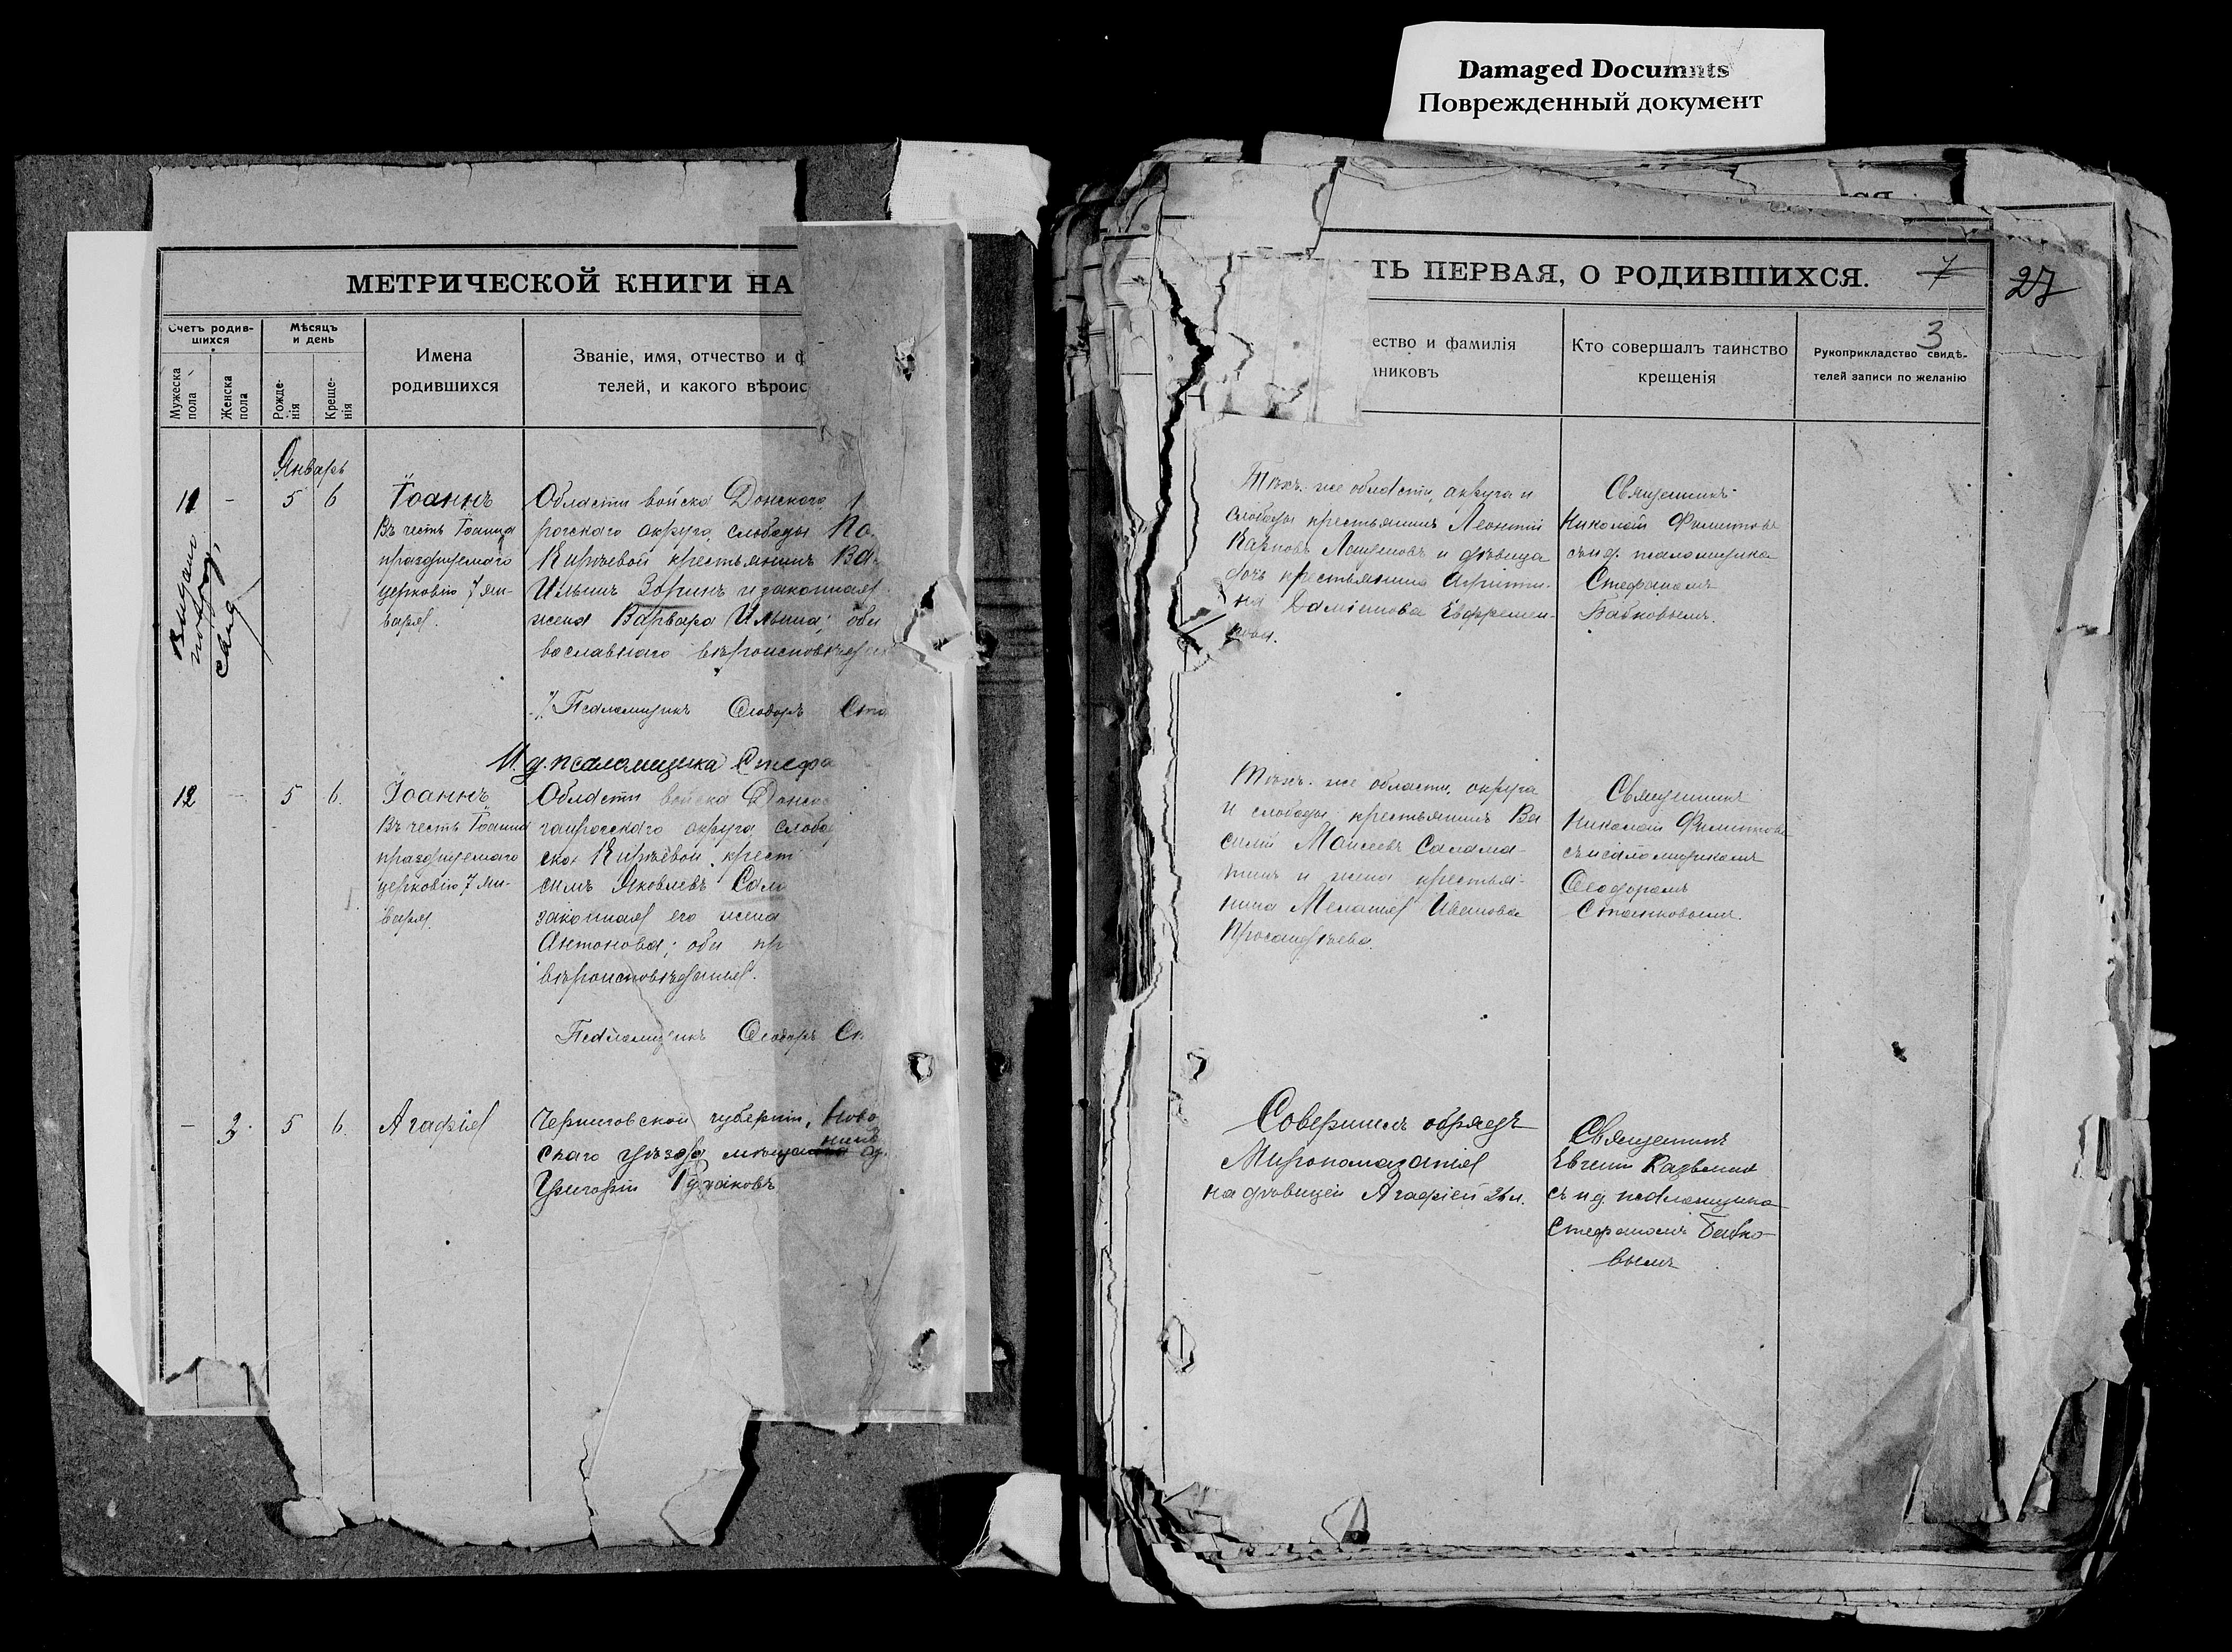 Damaged Documnts
Поврежденный документ
МЕТРИЧЕСКОЙ КНИГИ НА
Счетъ родив-
шихся
Мужеска
пола
Женска
пола
Мѣсяцъ
и день
Рожде-
нія
Креще-
нія
Имена
родившихся
Званіе, имя, отчество и ф
телей, и какого вѣроис
Январь
11 - 5 6
Іоаннъ
Въ честь Іоанна
празднуемаго
церковію 7 Ян-
варя.
Выдано
Области войска Донского
рогского округа, слободы По
Киреевой крестьянинъ Ва-
Ильинъ Зоринъ и законная
жена Варвара Ильина; оби
вославнаго вѣроисповѣдан
Псаломщикъ Ѳеодоръ Ста
И. д. псаломщика Стефа
12 - 5 6.
Іоаннъ
Въ честь Іоанна
празднуемаго
церковію 7 Ян-
варя.
Области войска Донско
ганрогскаго округа слобод
ско Киреевой, крест
симъ Яковлевъ Сала
законная его жена
Антонова; оби пр
вѣроисповѣданія.
Псаломщикъ Ѳеодоръ Ст
- 3. 5 6.
Агафія
Черниговской губерніи, Ново
скаго уѣзда мѣщан
нинъ
Григорій
ТЬ ПЕРВАЯ, О РОДИВШИХСЯ.
7
27
3
ество и фамилія
никовъ
Кто совершалъ таинство
крещенія
Рукоприкладство свидѣ-
телей записи по желанію
Тѣхъ-же области, округа и
слободы крестьянинъ Леонтій
Карповъ и дѣвица
дочь крестьянина Агриппи-
на Даміанова Евфреми-
нова.
Священникъ
Николай Филиповъ
съ и. д. псаломщика
Стефаномъ
Бабковымъ.
Тѣхъ-же области, округа
и слободы крестьянинъ Ва
силій Моисеевъ Салама-
тинъ и жена крестья-
нина Меланія Иванова
Священникъ
Николай Филиповъ
съ псаломщикомъ
Ѳеодоромъ
Станковымъ.
Совершилъ обрядъ
Миропомазанія
на дѣвицей Агафіей 21 л.
Священникъ
Евгеній
съ и д. псаломщика
Стефаномъ Бабко-
вымъ